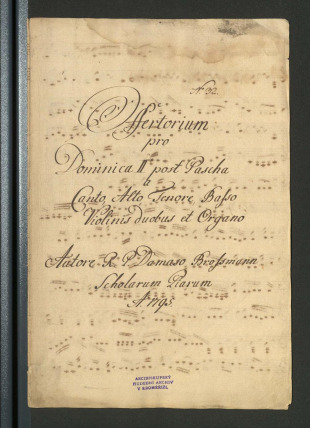 N 32.
Offertorium
pro
Dominica II post Pascha
a
Canto, Alto, Tenore Basso
Violinis duobus et Organo
Autore R. P. Damaso Brosmann
Scholarum Piarum
ARCIBISKUPSKÝ
HUDEBNÍ ARCHIV
V KROMĚŘÍŽI.